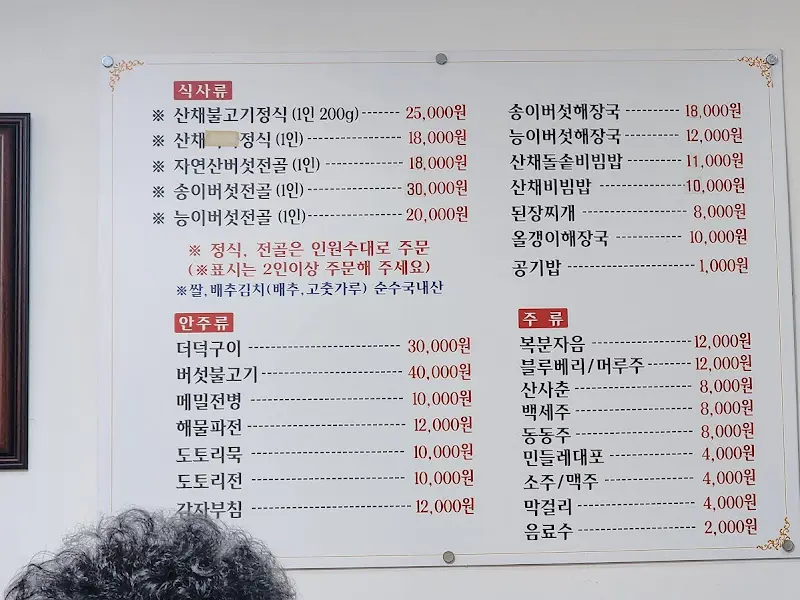 식사류
※ 산채불고기정식 (1인 200g) ------ 25,000원
※ 산채 정식 (1인) ------ 18,000원
※ 자연산버섯전골 (1인) ------ 18,000원
※ 송이버섯전골 (1인) ------ 30,000원
※ 능이버섯전골 (1인) ------ 20,000원
※ 정식, 전골은 인원수대로 주문
(※표시는 2인이상 주문해 주세요)
※쌀,배추김치(배추,고춧가루) 순수국내산
안주류
더덕구이 ------ 30,000원
버섯불고기 ------ 40,000원
메밀전병 ------ 10,000원
해물파전 ------ 12,000원
도토리묵 ------ 10,000원
도토리전 ------ 10,000원
감자부침 ------ 12,000원
송이버섯해장국 ------ 18,000원
능이버섯해장국 ------ 12,000원
산채돌솥비빔밥 ------ 11,000원
산채비빔밥 ------ 10,000원
된장찌개 ------ 8,000원
올갱이해장국 ------ 10,000원
공기밥 ------ 1,000원
주 류
복분자음 ------ 12,000원
블루베리/머루주 ------ 12,000원
산사춘 ------ 8,000원
백세주 ------ 8,000원
동동주 ------ 8,000원
민들레대포 ------ 4,000원
소주/맥주 ------ 4,000원
막걸리 ------ 4,000원
음료수 ------ 2,000원